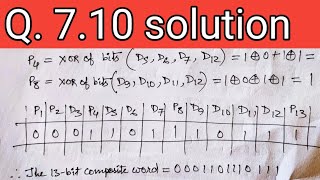 Q. 7.10 solution
P4 = XOR of bits (D5, D6, D7, D12) = 1⊕0⊕1⊕1 =
P8 = XOR of bits (D9, D10, D11, D12) = 1⊕0⊕1⊕1 =
P1 P2 D3 P4 D5 D6 D7 P8 D9 D10 D11 D12 P13
0 0 0 1 1 0 1 1 1 0 1 1 1
∴ The 13-bit composite word = 0001101110111